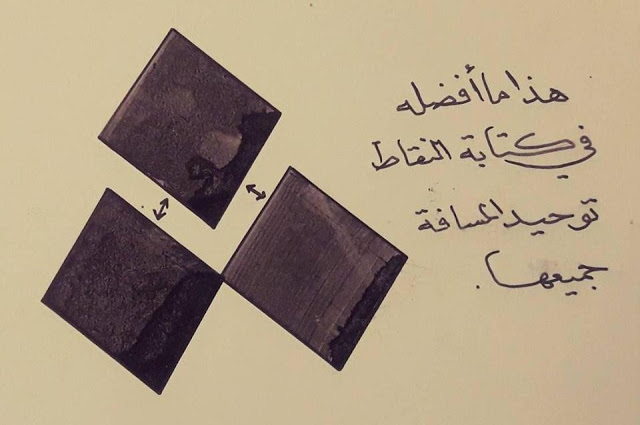 هذا ما أفضله
في كتابة النقاط
توحيد المسافة
جميعها.